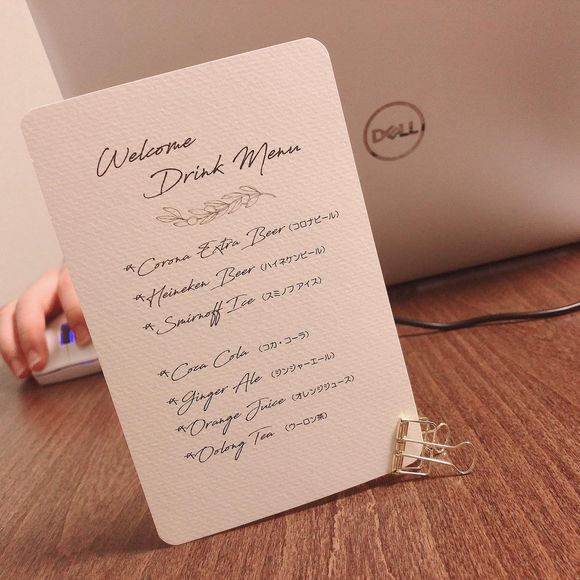 Welcome
Drink Menu
Corona Extra Beer (コロナビール)
Heineken Beer (ハイネケンビール)
Smirnoff Ice (スミノフ アイス)
Coca Cola (コカ・コーラ)
Ginger Ale (ジンジャーエール)
Orange Juice (オレンジジュース)
Oolong Tea (ウーロン茶)
DELL